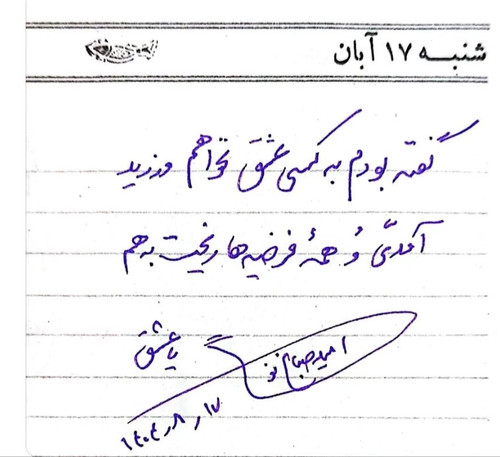 شنبه ۱۷ آبان
گفته بودم به کسی عشق نخواهم ورزید
آمدیّ وُ همهٔ فرضیه‌ها ریخت به هم
یا عشق
امید صباغ نو
۱۴۰۴٫۸٫۱۷